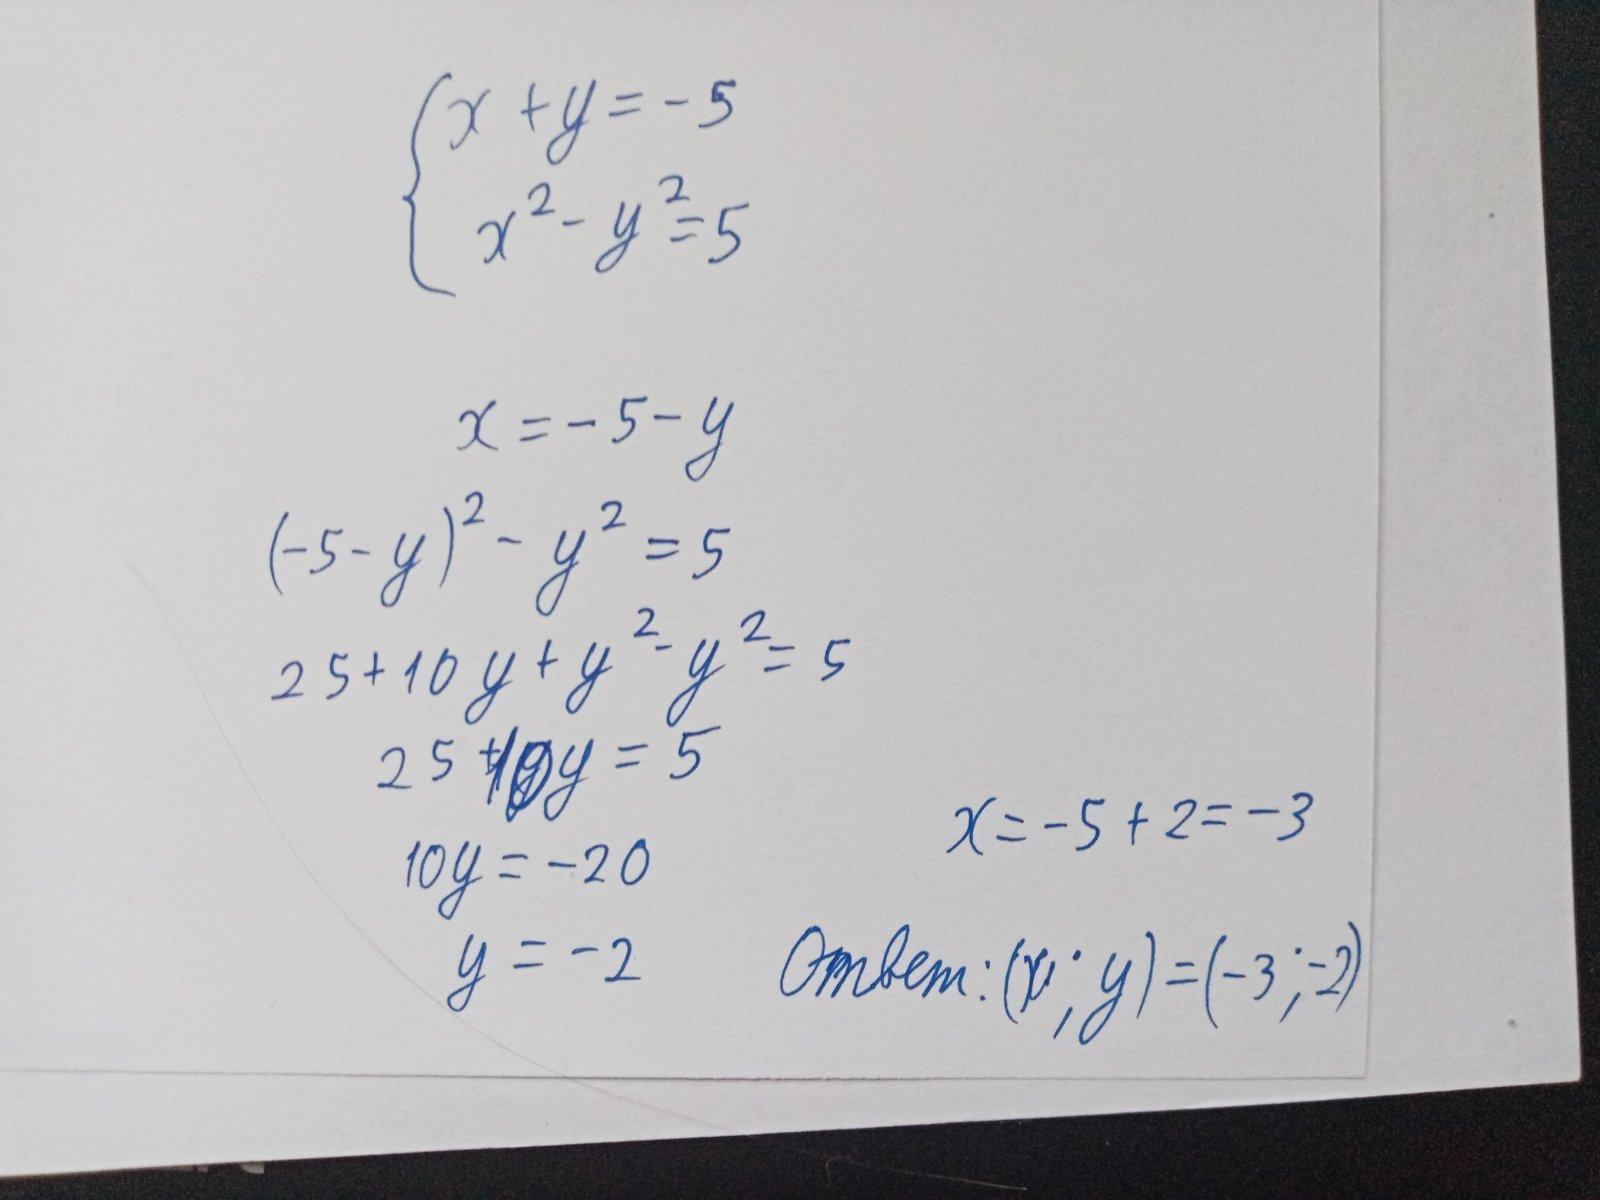 x + y = - 5
x² - y² = 5
x = - 5 - y
(-5 - y)² - y² = 5
25 + 10y + y² - y² = 5
25 + 10y = 5
10y = -20
y = -2
x = -5 + 2 = -3
Ответ: (x; y) = (-3; -2)